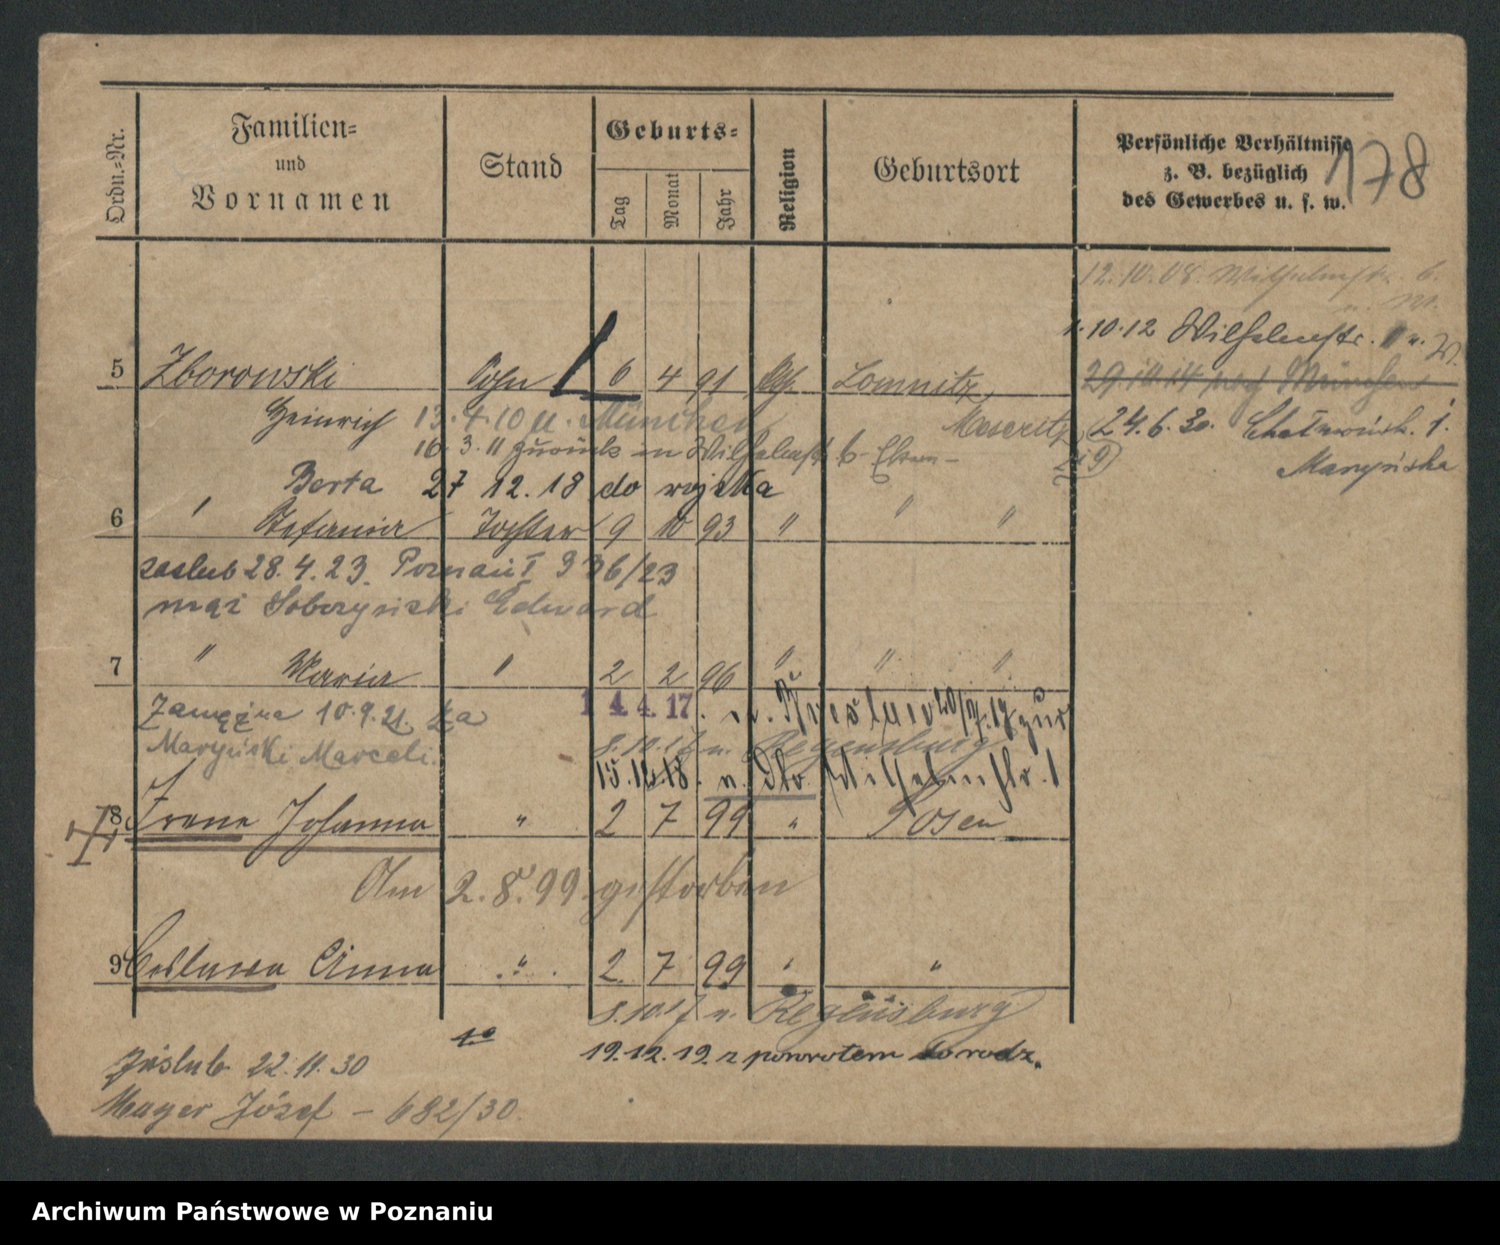 Ordn.=Nr.
Familien=
und
Vornamen
Stand
Geburts=
Tag
Monat
Jahr
Religion
Geburtsort
Persönliche Verhältnisse
z. B. bezüglich
des Gewerbes u. s. w.
178
12.10.08. Wilhelmstr. 6.
1.10.12 Wilhelmstr. 11 u. W.
5 Zborowski Sohn L 6 4 91 kth. Lomnitz,
29.10.14 nach München
Heinrich 13.4.10 u. München Meseritz
24.6.30.
16.3.11 zurück in Wilhelmstr 6 Eltern-
Marysińska
Berta 27 12.18 do wojska
6 " Stefania Tochter 9 10 93 " " "
zaslub 28.4.23. Poznań I 336/23
mąż Sobczyński Edward
7 " Maria " 2 2 96 " " "
Zamężna 10.9.21. za
14.4.17. n. Breslau 20/9.17 zur
Maryński Marceli.
8.10.17 n. Regensburg
15.10.18. v. Dto. Wilhelmstr. 1
8 Irene Johanna " 2 7 99 " Posen
Am 2.8.99 gestorben
9 Anna " 2 7 99 " "
8.10.17 n. Regensburg
19.12.19. z powrotem do rodz.
Zaślub 22.11.30
Mayer Józef – 682/30.
Archiwum Państwowe w Poznaniu